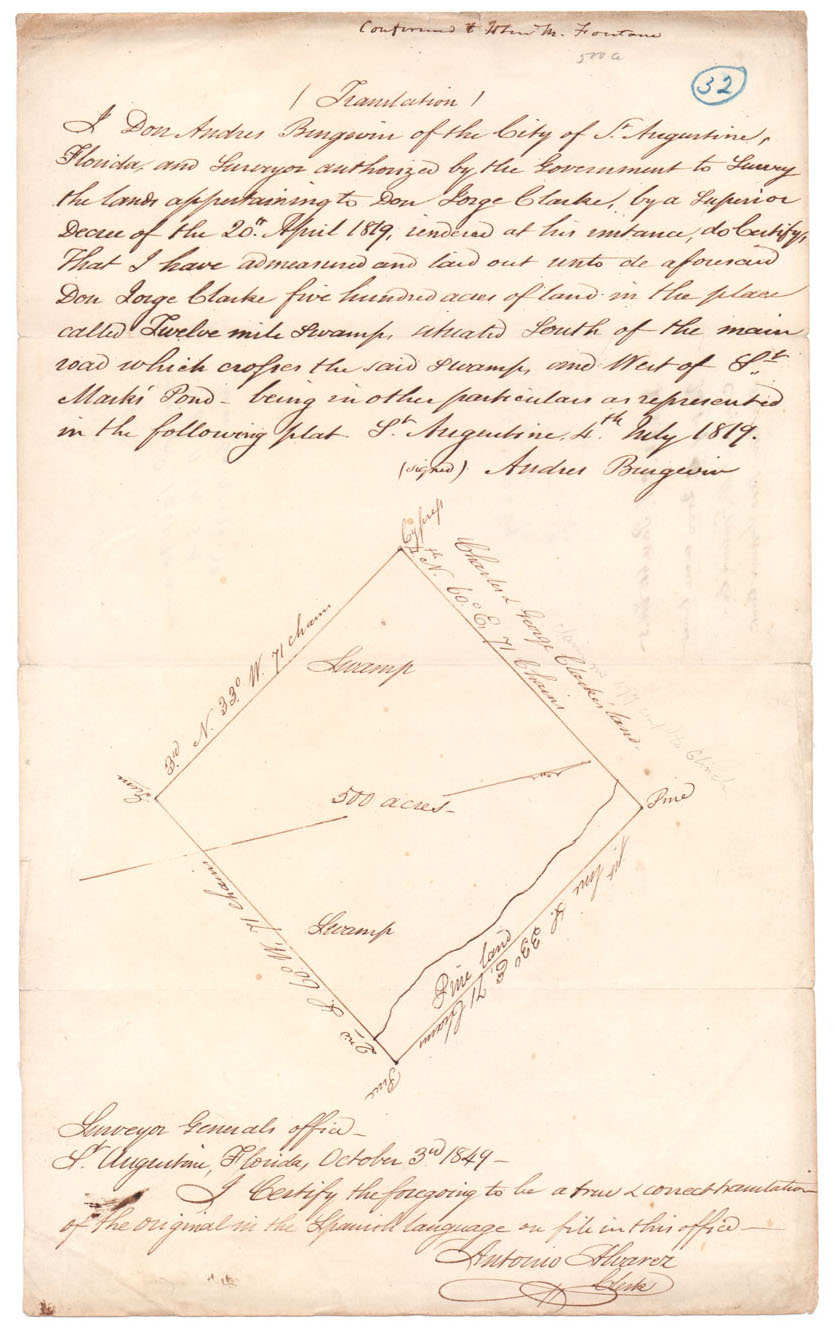 Confirmed to John M. Fontane
500 a
32
( Translation )
I Don Andres Burgevin of the City of St. Augustine,
Florida, and Surveyor authorized by the Government to Survey
the lands appertaining to Don Jorge Clarke, by a Superior
Decree of the 20th April 1819, rendered at his instance, do Certify,
That I have admeasured and laid out unto de aforesaid
Don Jorge Clarke five hundred acres of land in the place
called Twelve mile Swamp, situated South of the main
road which crosses the said swamp, and West of St.
Marks' Pond - being in other particulars as represented
in the following plat. St. Augustine, 4th July 1819.
(signed) Andres Burgevin
Cypress
4th N. 60° E. 71 Chains
Charles & George Clarke's land.
3rd N. 33° W. 71 chains
Swamp
500 acres-
Pine
1st line S. 33° E. 71 Chains
Pine land
Swamp
2nd S. 60° W. 71 chains
Pine
Surveyor Generals office-
St. Augustine, Florida, October 3rd 1849-
I Certify the foregoing to be a true & correct translation
of the original in the Spanish language on file in this office-
Antonio Alvarez
Clerk